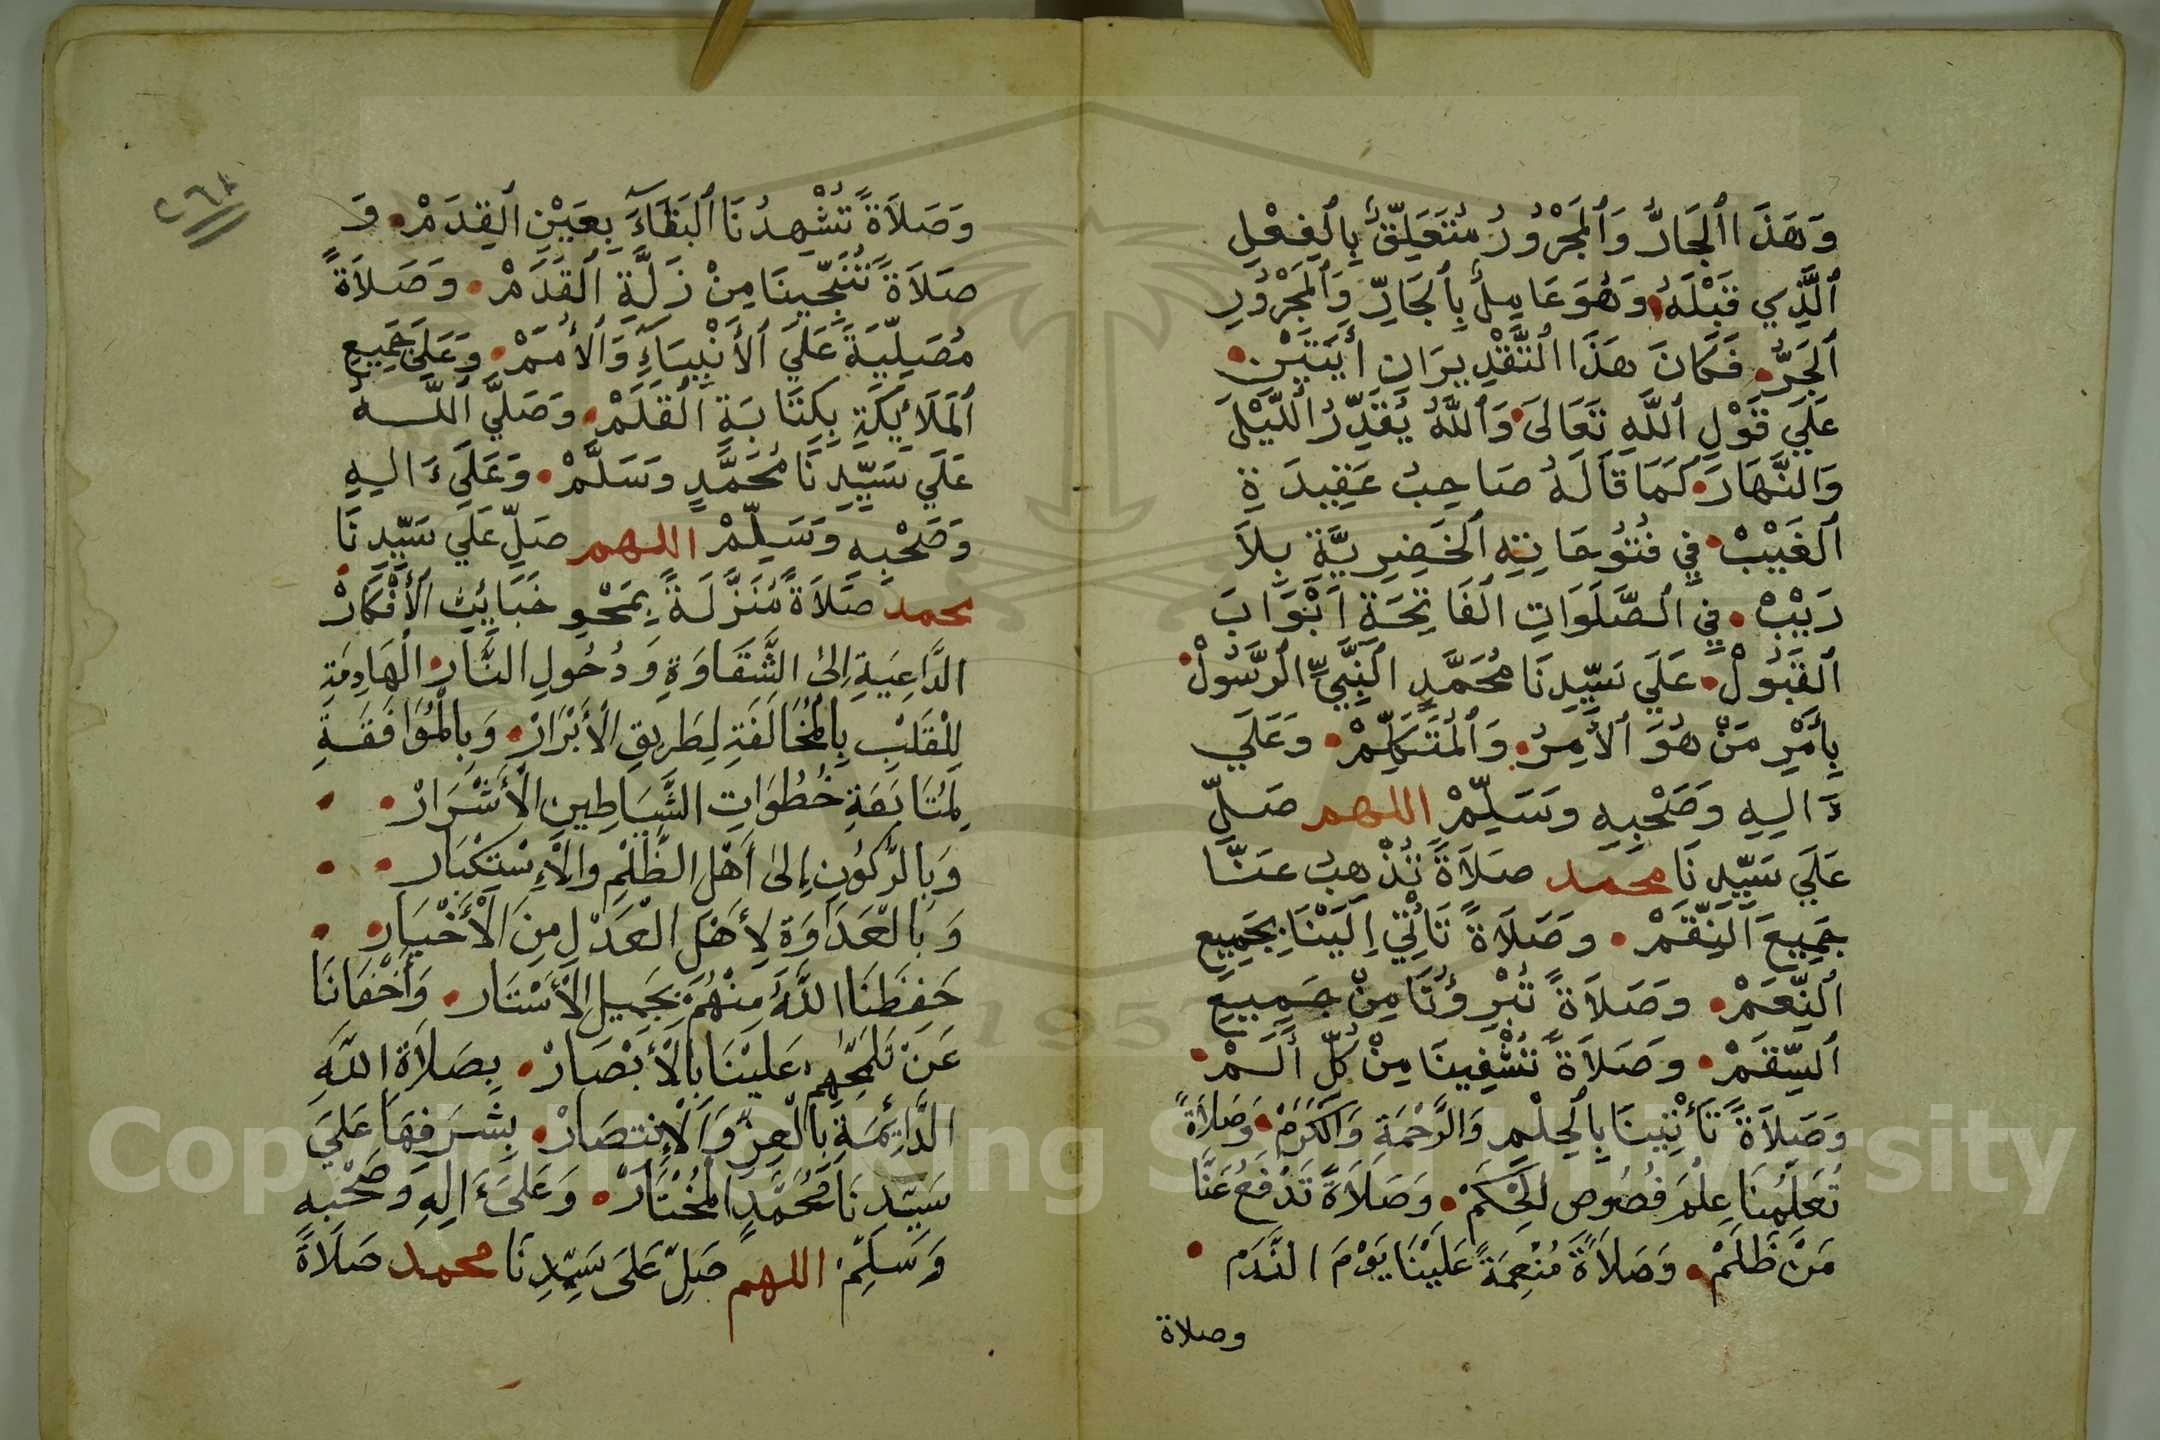 وَهَذَا ٱلْجَارُّ وَٱلْمَجْرُورُ مُتَعَلِّقٌ بِٱلْفِعْلِ
ٱلَّذِي قَبْلَهُ وَهُوَ عَامِلٌ بِٱلْجَارِّ وَٱلْمَجْرُورِ
ٱلْجَرُّ فَكَانَ هَذَا ٱلتَّقْدِيرَانِ أَيَتَيْنِ
عَلَي قَوْلِ ٱللَّهِ تَعَالَى وَٱللَّهُ يُقَدِّرُ اللَّيْلَ
وَالنَّهَارَ كَمَا قَالَهُ صَاحِبُ عَقِيدَةِ
ٱلْغَيْبْ فِي فُتُوحَاتِهِ ٱلْخَضِرِيَّةِ بِلَا
رَيْبْ فِي ٱلصَّلَوَاتِ ٱلْفَاتِحَةِ أَبْوَابَ
ٱلْقَبُولْ عَلَي سَيِّدِنَا مُحَمَّدٍ ٱلنَّبِيِّ ٱلرَّسُولْ
بِأَمْرِ مَنْ هُوَ ٱلْأَمِرُ وَٱلْمُتَكَلِّمْ وَعَلَي
ءَالِهِ وَصَحْبِهِ وَسَلِّمْ اللهم صَلِّ
عَلَي سَيِّدِنَا محمد صَلَاةً تُذْهِبُ عَنَّا
جَمِيعَ ٱلنِّقَمْ وَصَلَاةً تَأْتِي إِلَيْنَا بِجَمِيعِ
ٱلنِّعَمْ وَصَلَاةً تُبْرِؤُنَا مِنْ جَمِيعِ
ٱلسِّقَمْ وَصَلَاةً تُشْفِينَا مِنْ كُلِّ أَلَمْ
وَصَلَاةً تَأْتِينَا بِٱلْحِلْمِ وَالرَّحْمَةِ وَالْكَرَمْ وَصَلَاةً
تُعَلِّمُنَا عِلْمَ فُصُوصِ ٱلْحِكَمْ وَصَلَاةً تَدْفَعُ عَنَّا
مَنْ ظَلَمْ وَصَلَاةً مُنْعِمَةً عَلَيْنَا يَوْمَ النَّدَمْ
وصلاة
٢٦٨
وَصَلَاةً تُشْهِدُنَا ٱلْبَقَاءَ بِعَيْنِ ٱلْقِدَمْ وَ
صَلَاةً تُنَجِّينَا مِنْ زَلَّةِ ٱلْقَدَمْ وَصَلَاةً
مُصَلِّيَةً عَلَي ٱلْأَنْبِيَاءِ وَٱلْأُمَمْ وَعَلَي جَمِيعِ
ٱلْمَلَائِكَةِ بِكِتَابَةِ ٱلْقَلَمْ وَصَلَّي ٱللَّهُ
عَلَي سَيِّدِنَا مُحَمَّدٍ وَسَلَّمْ وَعَلَي ءَالِهِ
وَصَحْبِهِ وَسَلِّمْ اللهم صَلِّ عَلَي سَيِّدِنَا
محمد صَلَاةً مُنَزَّلَةً بِمَحْوِ خَبَائِثِ ٱلْأَفْكَارْ
الدَّاعِيَةِ إِلَى الشَّقَاوَةِ وَدُخُولِ النَّارْ الْهَادِمَةِ
لِلْقَلْبِ بِالْمُخَالَفَةِ لِطَرِيقِ الْأَبْرَارْ وَبِالْمُوَافَقَةِ
لِمُتَابَعَةِ خُطُوَاتِ الشَّيَاطِينِ الْأَشْرَارْ
وَبِالرُّكُونِ إِلَى أَهْلِ الظُّلْمِ وَالْإِسْتِكْبَارْ
وَبِالْعَدَاوَةِ لِأَهْلِ الْعَدْلِ مِنَ الْأَخْيَارْ
حَفِظَنَا اللَّهُ مِنْهُمْ بِجَمِيلِ الْأَسْتَارْ وَأَخْفَانَا
عَنْ تَلَمُّحِهِمْ عَلَيْنَا بِالْأَبْصَارْ بِصَلَاةِ اللَّهِ
الدَّائِمَةِ بِالْعِزِّ وَالْإِنْتِصَارْ بِشَرَفِهَا عَلَي
سَيِّدِنَا مُحَمَّدٍ الْمُخْتَارْ وَعَلَى ءَالِهِ وَصَحْبِهِ
وَسَلِّمْ اللهم صَلِّ عَلَى سَيِّدِنَا محمد صَلَاةً
Copyright © King Saud University
1957